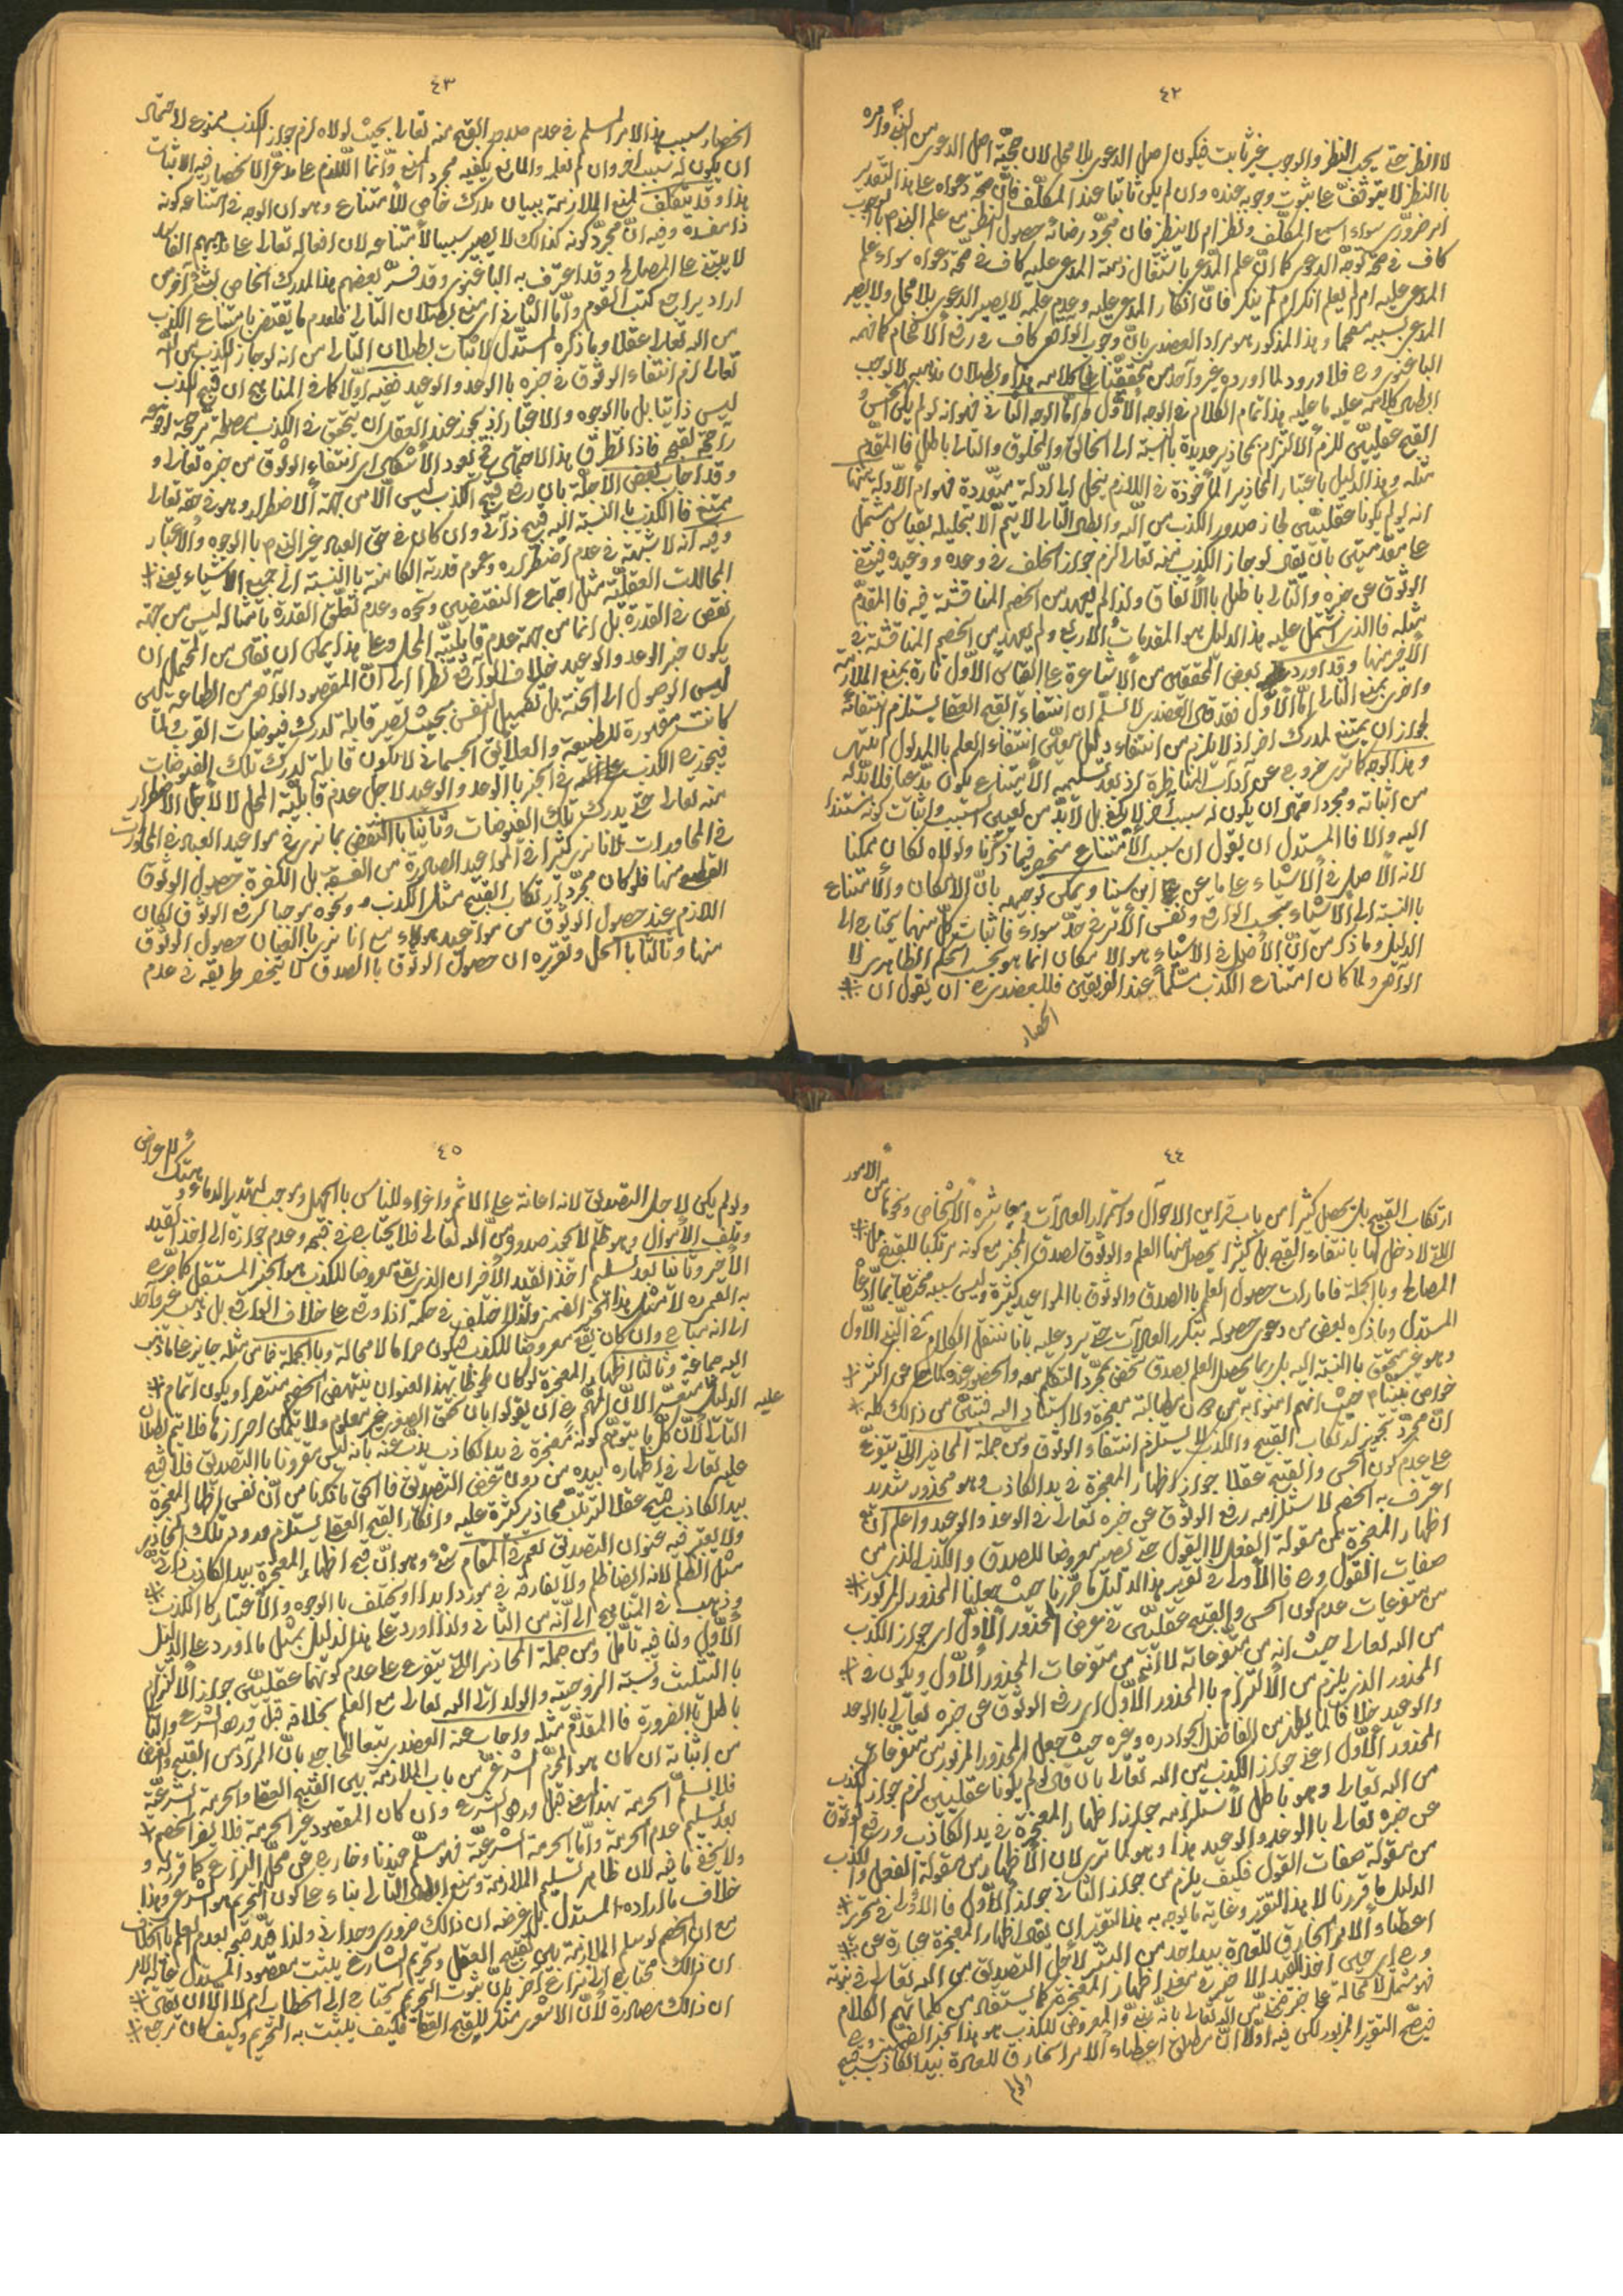 ٤٢
لا انظر حتى يجب النظر والوجوب غير ثابت فيكون اصل الدعوى بلا محل لان صحة اصل الدعوى من النبي وامره
بالنظر لا يتوقف على ثبوت وجوبه عنده وان لم يكن ثابتا عند المكلف فان صحة دعواه على هذا التقدير
امر ضروري سواء اسمع المكلف ونظر ام لا ينظر فان مجرد رضائه حصول النظر مع علم الخصم بالوجوب
كاف في صحة توجه الدعوى كما ان علم المدعي باشتغال ذمة المدعى عليه كاف في صحة دعواه سواء علم
المدعى عليه ام لم يعلم انكر ام لم ينكر فان انكار المدعى عليه وعدم علمه لا يصير الدعوى بلا محل ولا يصير
المدعي بسببه مفحما وهذا المذكور هو مراد العضدي بان وجوب الواقعي كاف في رفع الافحام كما فهمه
الباغنوي ره فلا ورود لما اورده غير واحد من محققنا على كلامه هذا وبطلان مذهبه لا يوجب
ابطال كلامه عليه ما عليه هذا تمام الكلام في الوجه الاول واما الوجه الثاني فهو انه لو لم يكن الحسن و
القبح عقليين للزم الالتزام بمحاذير عديدة بالنسبة الى الخالق والمخلوق والتالي باطل فالمقدم
مثله وهذا الدليل باعتبار المحاذير المأخوذة في اللازم ينحل الى ادلة متعددة فهو ام الادلة منها
انه لو لم يكونا عقليين لجاز صدور الكذب من الله وابطال التالي لا يتم الا بتحليله بقياس مشتمل
على مقدمتين بان يقال لو جاز الكذب منه تعالى لزم جواز الخلف في وعده ووعيده فينتفى
الوثوق عن خبره والتالي باطل بالاتفاق ولذا لم يعهد من الخصم المناقشة فيه فالمقدم
مثله فالذي اشتمل عليه هذا الدليل هو المقدمات الاربع ولم يعهد من الخصم المناقشة في
الاخير منها وقد اورد بعض المحققين من الاشاعرة على القياس الاول تارة بمنع الملازمة
واخرى بمنع التالي اما الاول فقد قال العضدي لا نسلم ان انتفاء القبح العقلي يستلزم انتفائه
لجواز ان يمتنع لمدرك اخر اذ لا يلزم من انتفاء دليل معين انتفاء العلم بالمدلول انتهى
وهذا الوجه كما ترى خروج عن آداب المناظرة اذ بعد تسليمه الامتناع يكون مدعيا فلا بد له
من اثباته ومجرد احتمال ان يكون له سبب آخر لا يكفي بل لا بد من تعيين السبب واثبات كونه مستندا
اليه والا فالمستدل ان يقول ان سبب الامتناع منحصر فيما ذكرنا ولولاه لكان ممكنا
لانه الاصل في الاشياء على ما عن ابن سينا ويمكن توجيهه بان الامكان والامتناع
بالنسبة الى الاشياء بحسب الواقع ونفس الامر في حد سواء فاثبات كل منهما يحتاج الى
الدليل وما ذكر من ان الاصل في الاشياء هو الامكان انما هو بحسب الحكم الظاهري لا
الواقعي ولما كان امتناع الكذب مسلما عند الفريقين فللعضدي ره ان يقول ان
انحصار
٤٣
انحصار سبب هذا الامر المسلم في عدم صدور القبيح منه تعالى بحيث لولاه لزم جواز الكذب ممنوع لاحتمال
ان يكون له سبب اخر وان لم نعلمه والمانع يكفيه مجرد المنع وانما اللازم على مدعي الانحصار فيه الاثبات
هذا وقد يتكلف لمنع الملازمة ببيان مدرك خاص للامتناع وهو ان الوجه في امتناعه كونه
ذا مفسدة وفيه ان مجرد كونه كذلك لا يصير سببا لامتناعه لان افعاله تعالى على مذهبهم الفاسد
لا يبتنى على المصالح وقد اعترف به الباغنوي وقد فسر بعضهم هذا المدرك الخاص بشيء آخر من
اراد يراجع كتب القوم واما الثاني اي منع بطلان التالي فلعدم ما يقتضى بامتناع الكذب
من الله تعالى عقلا وما ذكره المستدل لاثبات بطلان التالي من انه لو جاز الكذب من الله
تعالى لزم انتفاء الوثوق في خبره بالوعد والوعيد ففيه اولا كما في المناهج ان قبح الكذب
ليس ذاتيا بل بالوجوه والاعتبار اذ يجوز عند العقل ان يتحقق في الكذب مصلحة مرجحة لوقوعه
راجحة لقبحه فاذا تطرق هذا الاحتمال فيعود الاشكال اي انتفاء الوثوق من خبره تعالى و
وقد اجاب بعض الاجلة بان رفع قبح الكذب ليس الا من جهة الاضطرار وهو في حقه تعالى
ممتنع فالكذب بالنسبة اليه قبيح ذاتي وان كان في حق العباد غير الخصم بالوجوه والاعتبار
وفيه انه لا شبهة في عدم اضطراره وعموم قدرته الكاملة بالنسبة الى جميع الاشياء
المحالات العقلية مثل اجتماع النقيضين ونحوه وعدم تعلق القدرة بامثاله ليس من جهة
نقص في القدرة بل انما من جهة عدم قابلية المحل وعلى هذا يمكن ان يقال من المحتمل ان
يكون خبر الوعد والوعيد خلاف الواقع نظرا الى ان المقصود الواقعي من الطاعة ليس
ليس الوصول الى الجنة بل تكميل النفس بحيث تصير قابلة لدرك فيوضات القرب ولما
كانت مقهورة للطبيعة والعلائق الجسمانية لا يكون قابلة لدرك تلك الفيوضات
فيجوز ح الكذب في الخبر بالوعد والوعيد لاجل عدم قابلية المحل لا لاجل الاضطرار
منه تعالى حتى يدرك تلك الفيوضات وثانيا بالنقض بما نرى في مواعيد العباد في المحاورات
في المحاورات لانا نرى كثيرا في المواعيد الصادرة من الفسقة بل الكفرة حصول الوثوق
القطعي منها فلو كان مجرد ارتكاب القبيح مثل الكذب ونحوه موجبا لرفع الوثوق لكان
اللازم عند حصول الوثوق من مواعيد هؤلاء مع انا نرى بالعيان حصول الوثوق
منها وثالثا بالحل وتقريره ان حصول الوثوق بالصدق لا ينحصر طريقه في عدم
٤٤
ارتكاب القبيح بل يحصل كثيرا من باب قراين الاحوال واستمرار العادات ومعاشرة الاشخاص ونحوها من الامور
التي لا دخل لها بانتفاء القبح بل كثيرا يحصل منها العلم والوثوق لصدق الخبر مع كونه مرتكبا للقبيح
المصالح وبالجملة فامارات حصول العلم بالصدق والوثوق بالمواعيد كثيرة وليس سببه مختصا بما ادعا
المستدل وما ذكره بعض من دعوى حصوله بتكرر العادات حتى يرد عليه بانا ننقل الكلام في النبي الاول
وهو غير متحقق بالنسبة اليه بل ربما يحصل العلم بصدق شخص بمجرد التكلم معه والحضور عنده كما عن اكثر
خواص نبينا حيث انهم امنوا به من دون مطالبته معجزة ولا استناد اليه فتبين من ذلك كله
ان مجرد تجويز ارتكاب القبيح والكذب لا يستلزم انتفاء الوثوق ومن جملة المحاذير التي يتفرع
على عدم كون الحسن والقبح عقلا جواز اظهار المعجزة في يد الكاذب وهو محذور شديد
اعترف به الخصم لاستلزامه رفع الوثوق عن خبره تعالى في الوعد والوعيد واعلم ان
اظهار المعجزة من مقولة الفعل لا القول حتى تصير معروضا للصدق والكذب الذي من
صفات القول وح فالاولى في تقرير هذا الدليل كما قررنا حيث جعلنا المحذور المذكور
من متفرعات عدم كون الحسن والقبح عقليين في عرض المحذور الاول اي جواز الكذب
من الله تعالى حيث انه من متفرعاته لا انه من متفرعات المحذور الاول ويكون في
المحذور الذي يلزم من الالتزام بالمحذور الاول اي رفع الوثوق عن خبره تعالى بالوعد
والوعيد خلافا لما يظهر من الفاضل الجواد ره وغيره حيث جعل المحذور المزبور من متفرعات
المحذور الاول اعني جواز الكذب من الله تعالى بان قال لو لم يكونا عقليين لزم جواز الكذب
من الله تعالى وهو باطل لاستلزامه جواز اظهار المعجزة في يد الكاذب ورفع الوثوق
عن خبره تعالى بالوعد والوعيد هذا وهو كما ترى لان الاظهار من مقولة الفعل والكذب
من مقولة صفات القول فكيف يلزم من جواز الثاني جواز الاول فالاولى في تحرير
الدليل كما قررنا لا بهذا التقرير وغاية ما يوجه به هذا التقرير ان يقال اظهار المعجزة عبارة عن
اعطاء الامر الخارق للعادة بيد احد من البشر لاجل التصديق من الله تعالى في نبوته
وح اي حين اخذ القيد الاخير في معنى اظهار المعجزة كما يستفاد من كلماتهم الكلام
فهو مشتمل لا محالة على خبر ضمني من الله تعالى بانه نبي والمعروض للكذب هو هذا الخبر الضمني وح
فيصح التقرير المزبور لكن فيه اولا ان مطلق اعطاء الامر الخارق للعادة بيد الكاذب قبيح
ولو لم
٤٥
ولو لم يكن لاجل التصديق لانه اعانة على الاثم واغراء للناس بالجهل وموجب لهدر الدماء وهتك الاعراض
وتلف الاموال وهو ظلم لا يجوز صدوره من الله تعالى فلا يحتاج في قبحه وعدم جوازه الى اخذ القيد
الاخير وثانيا بعد تسليم اخذ القيد الاخر ان الذي يقع معروضا للكذب هو الخبر المستقل كما صرح
به العميدي لا مثل هذا الخبر الضمني ولذا اختلف في حكمه اذا وقع على خلاف الواقع بل ذهب غير واحد
الى انه مباح وان كان يقع معروضا للكذب فيكون حراما لا محالة وبالجملة فاس مثله جايز على ما ذهب
اليه جماعة وثالثا اظهار المعجزة لو كان ملحوظا بهذا العنوان ينتهض الخصم منتصرا ويكون اتمام
الدليل متعسر عليه الا ان المهم ح ان يقولوا بان تحقق الصغرى غير معلوم ولا يمكن احرازها فلا يتم بطلان
التالي لان كل ما يتوهم كونه معجزة في يد الكاذب يذب عنه بانه ليس مقرونا بالتصديق فلا قبح
عليه تعالى في اظهاره بيده من دون غرض التصديق فالحق ما ذكرنا من ان نفس اظهار المعجزة
بيد الكاذب قبيح عقلا لترتب محاذير كثيرة عليه وانكار القبح العقلي يستلزم ورود تلك المحاذير
ولا يعتبر فيه عنوان التصديق نعم في المقام شيء وهو ان قبح اظهار المعجزة بيد الكاذب ذاتي
مثل الظلم لانه ايضا ظلم ولا يفارقه في مورد ابدا او يختلف بالوجوه والاعتبار كالكذب
وذهب في المناهج الى انه من الثاني ولذا اورد على هذا الدليل بمثل ما اورد على الدليل
الاول ولنا فيه تأمل ومن جملة المحاذير التي يتفرع على عدم كونهما عقليين جواز الالتزام
بالتثليث ونسبة الزوجية والولد الى الله تعالى مع العلم بخلافه قبل ورود الشرع والتالي
باطل بالضرورة فالمقدم مثله واجاب عنه العضدي تبعا للحاجبي بان المراد من القبح والغرض
من اثباته ان كان هو المحرم الشرعي من باب الملازمة بين القبح العقلي والحرمة الشرعية
فلا نسلم الحرمة بهذا المعنى قبل ورود الشرع وان كان المقصود غير الحرمة فلا يضر الخصم
بعد تسليم عدم الحرمة واما الحرمة الشرعية فهو مسلم عندنا وخارج عن محل النزاع كما قرر له و
ولا يخفى ما فيه لان ظاهر تسليم الملازمة ومنع ابطال التالي بناء على كون التحريم هو الشرعي وهذا
خلاف ما اراده المستدل بل غرضه ان ذلك ضروري وجداني ولذا قد صح بعدم العلم بالخلاف
مع ان الخصم لو سلم الملازمة بين تقبيح العقل وتحريم الشارع يثبت مقصود المستدل
ان ذلك محتاج الى نزاع آخر بان ثبوت التحريم يحتاج الى الخطاب ام لا الا ان يقال
ان ذلك مصادرة لان الاشعري منكر للقبح العقلي فكيف يثبت به التحريم وكيف كان يرجع